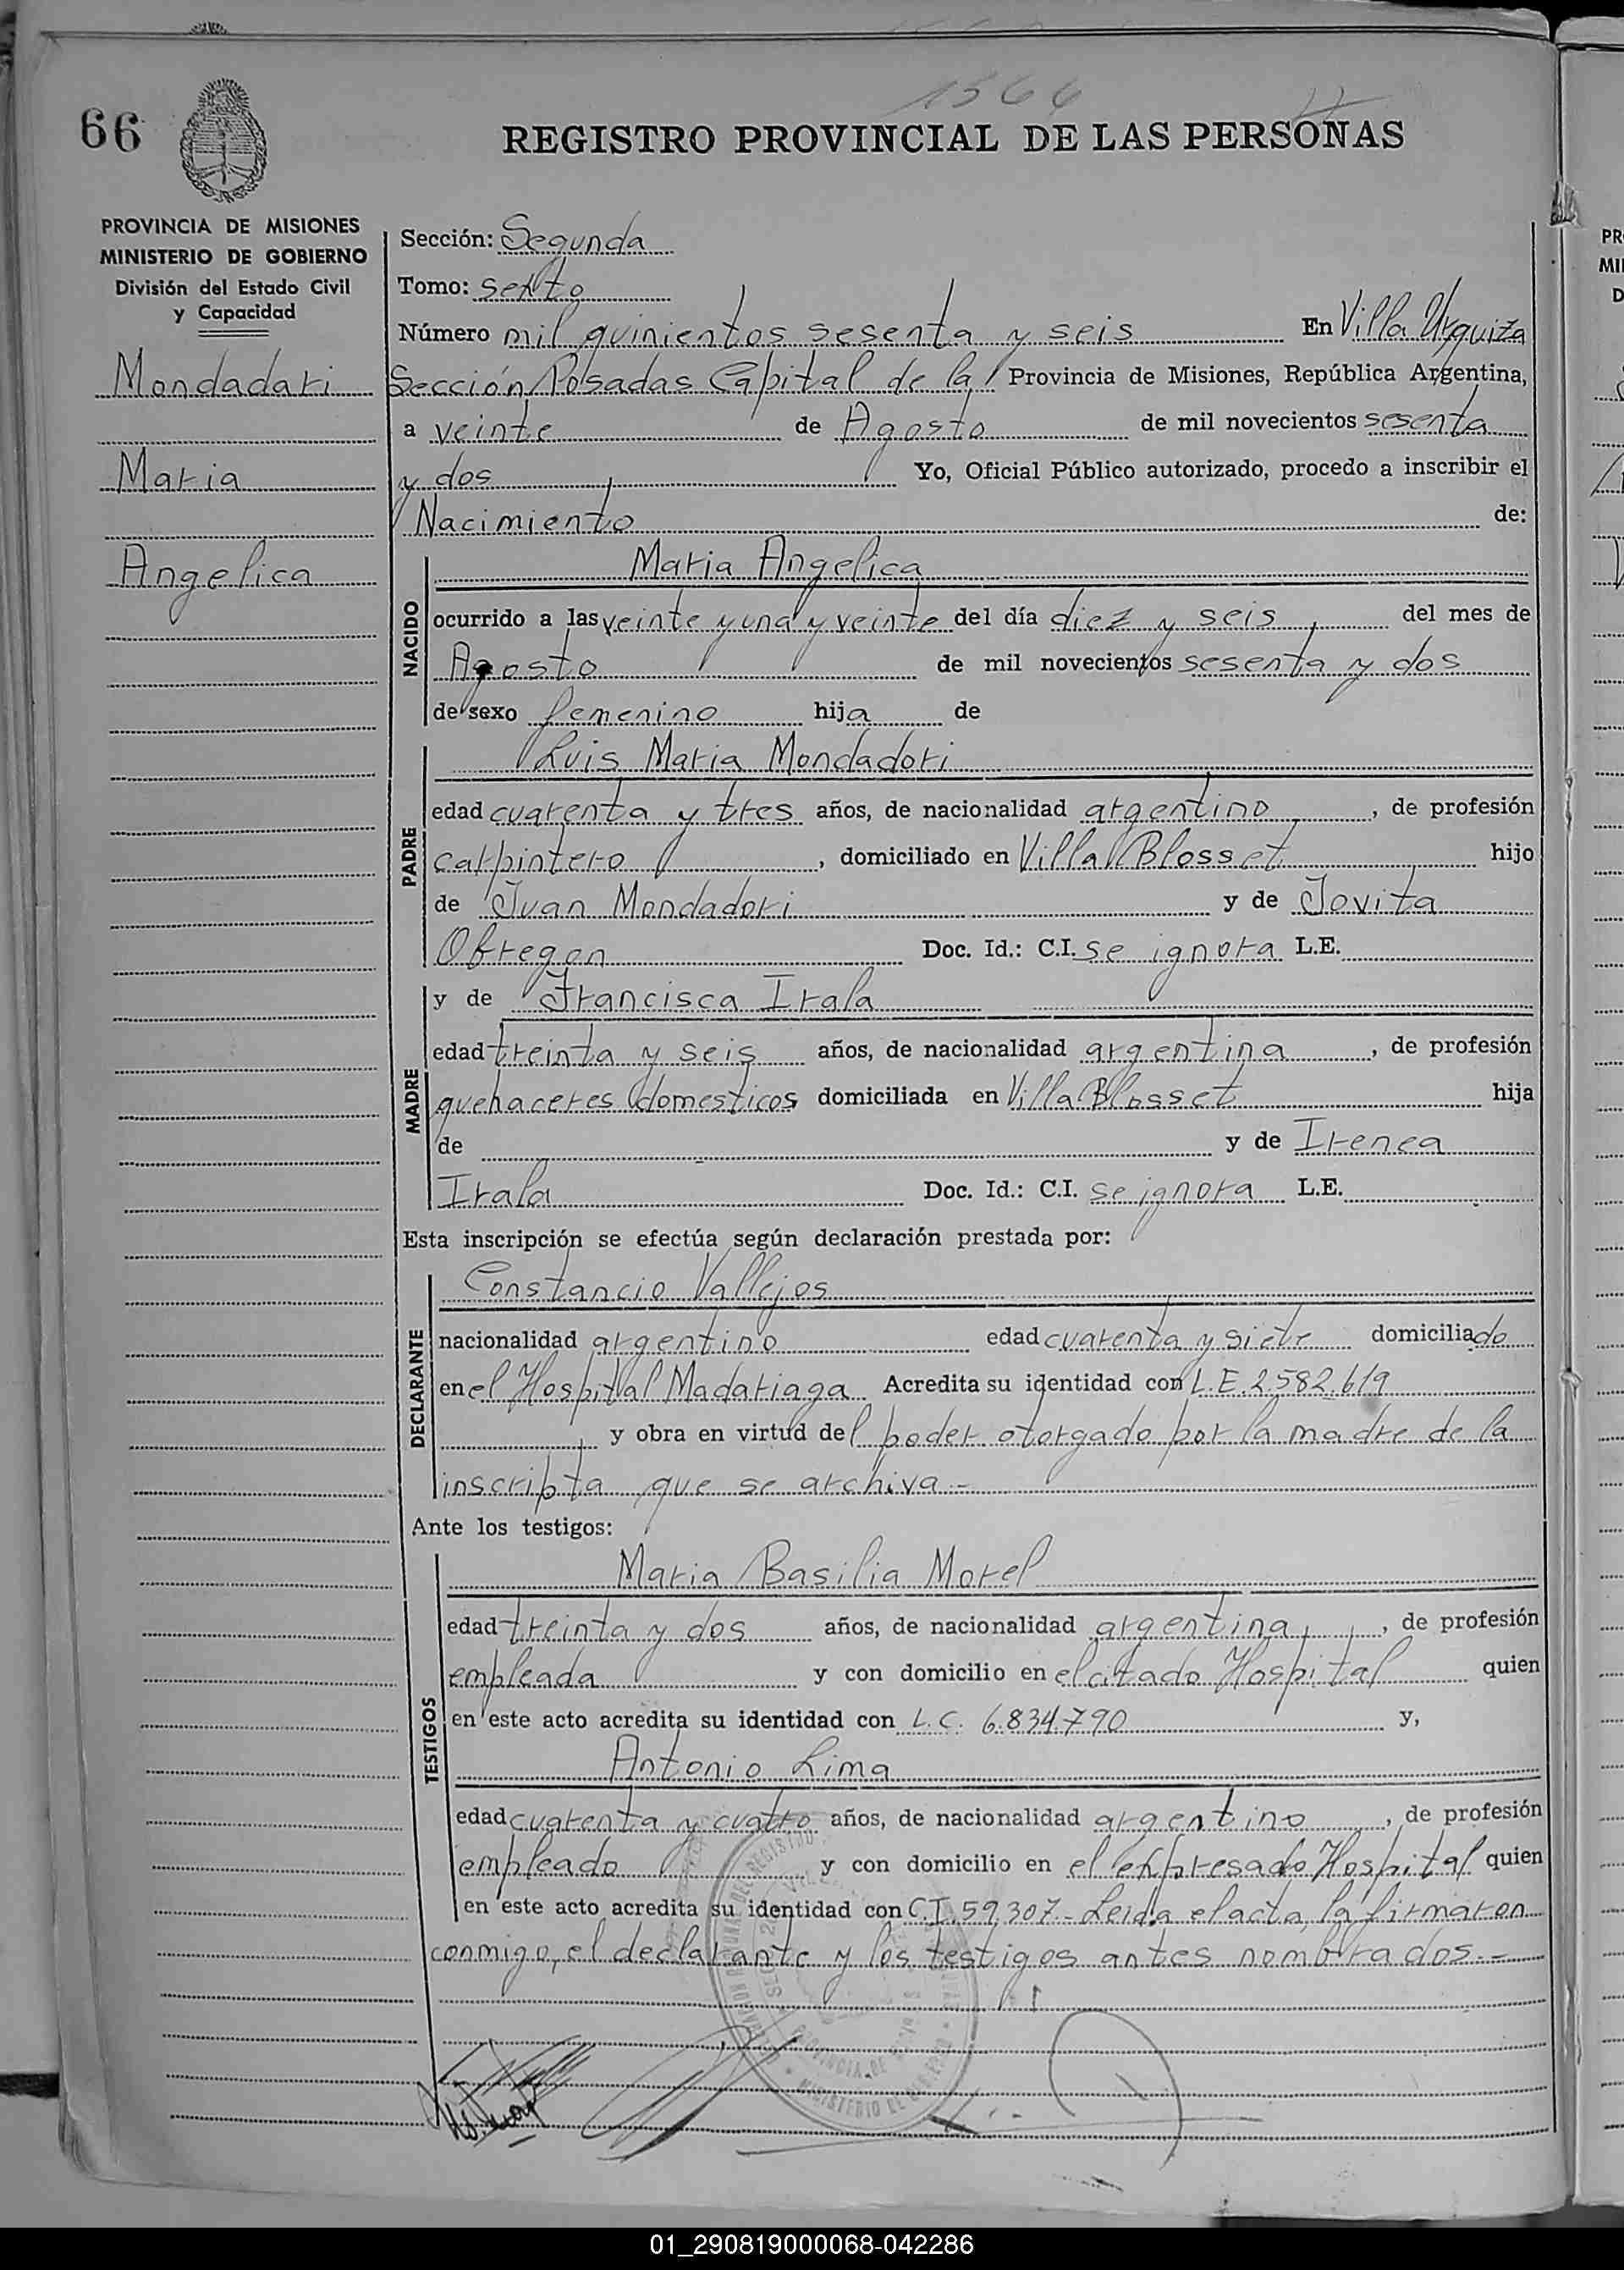 1566
66
REGISTRO PROVINCIAL DE LAS PERSONAS
PROVINCIA DE MISIONES
MINISTERIO DE GOBIERNO
División del Estado Civil
y Capacidad
Mondadari
Maria
Angelica
Sección: Segunda
Tomo: sexto
Número mil quinientos sesenta y seis En Villa Urquiza
Sección Posadas Capital de la Provincia de Misiones, República Argentina,
a veinte de Agosto de mil novecientos sesenta
y dos Yo, Oficial Público autorizado, procedo a inscribir el
Nacimiento de:
NACIDO
Maria Angelica
ocurrido a las veinte y una y veinte del día diez y seis del mes de
Agosto de mil novecientos sesenta y dos
de sexo femenino hija de
PADRE
Luis Maria Mondadori
edad cuarenta y tres años, de nacionalidad argentino, de profesión
carpintero, domiciliado en Villa Blosset hijo
de Juan Mondadori y de Jovita
Obregon Doc. Id.: C.I. se ignora L.E.
MADRE
y de Francisca Irala
edad treinta y seis años, de nacionalidad argentina, de profesión
quehaceres domesticos domiciliada en Villa Blosset hija
de y de Irenea
Irala Doc. Id.: C.I. se ignora L.E.
Esta inscripción se efectúa según declaración prestada por:
DECLARANTE
Constancio Vallejos
nacionalidad argentino edad cuarenta y siete domiciliado
en el Hospital Madariaga Acredita su identidad con L.E. 2.582.619
y obra en virtud del poder otorgado por la madre de la
inscripta que se archiva.-
Ante los testigos:
TESTIGOS
Maria Basilia Morel
edad treinta y dos años, de nacionalidad argentina, de profesión
empleada y con domicilio en el citado Hospital quien
en este acto acredita su identidad con L.C. 6.834.790 y,
Antonio Lima
edad cuarenta y cuatro años, de nacionalidad argentino, de profesión
empleado y con domicilio en el expresado Hospital quien
en este acto acredita su identidad con C.I. 59.307- Leida el acta, la firmaron
conmigo, el declarante y los testigos antes nombrados.-
01_290819000068-042286